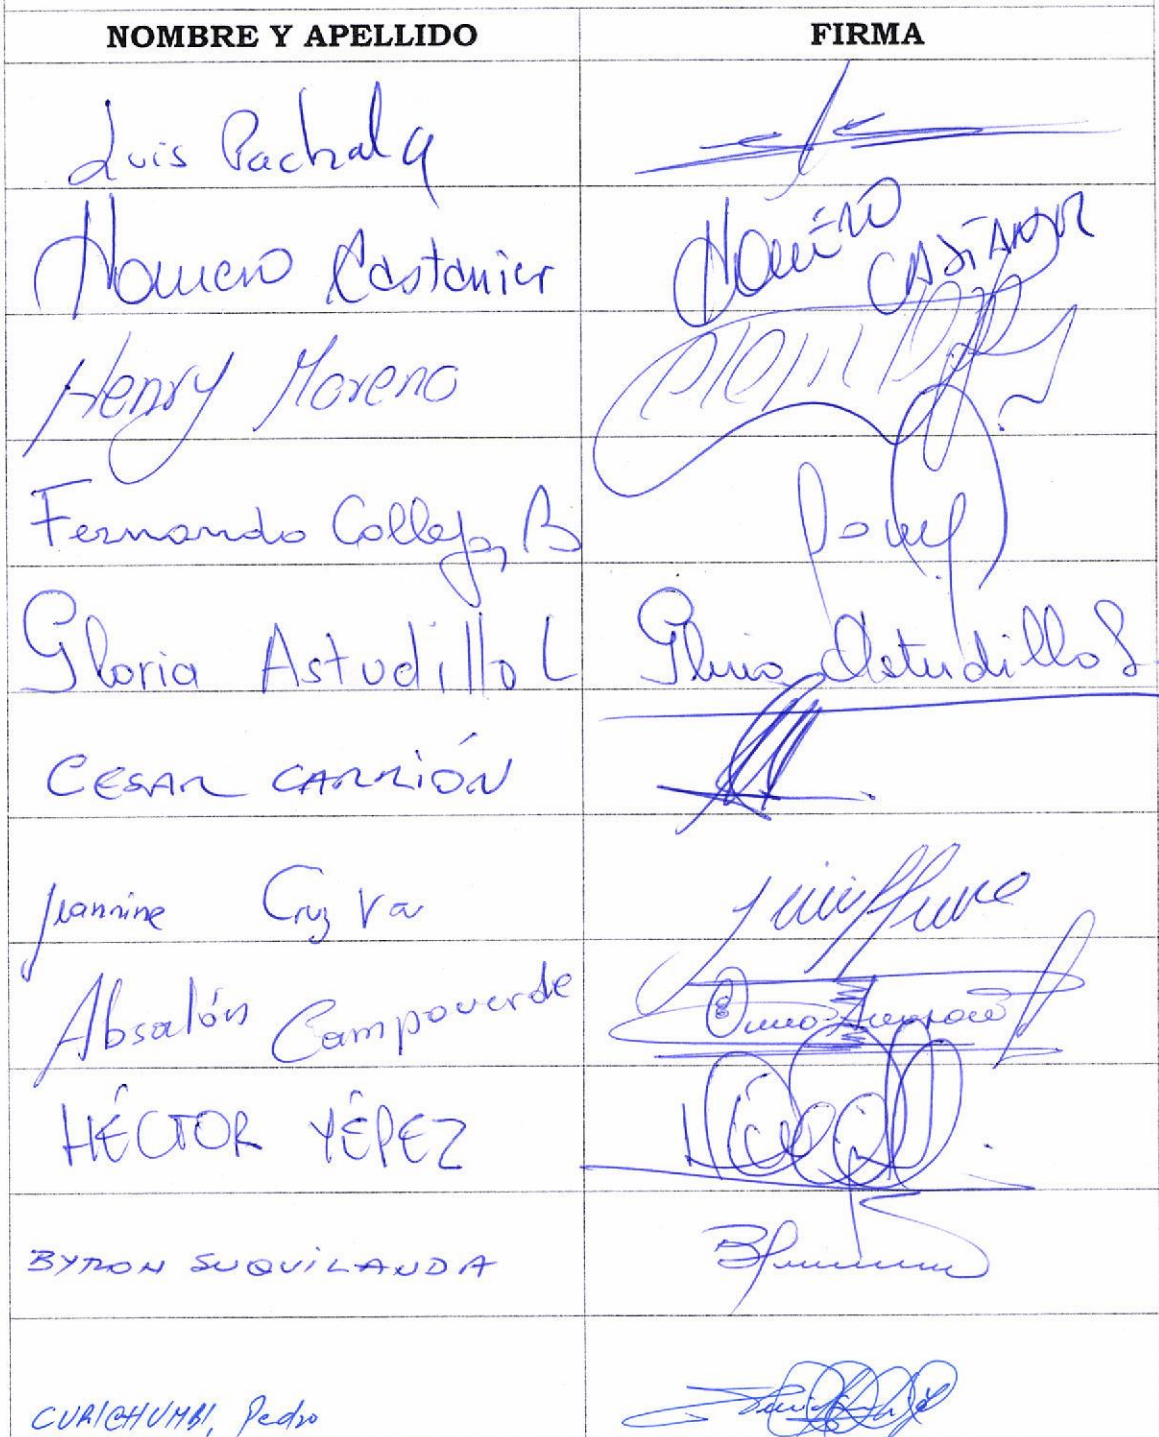 NOMBRE Y APELLIDO FIRMA
Luis Pachala
Homero Castanier Homero CASTANIER
Henry Moreno
Fernando Callejas B
Gloria Astudillo L Gloria Astudillo L
CESAR CARRIÓN
Jeannine Cruz Va
Absalón Campoverde
HÉCTOR YÉPEZ
BYRON SUQUILANDA
CURICHUMBI, Pedro